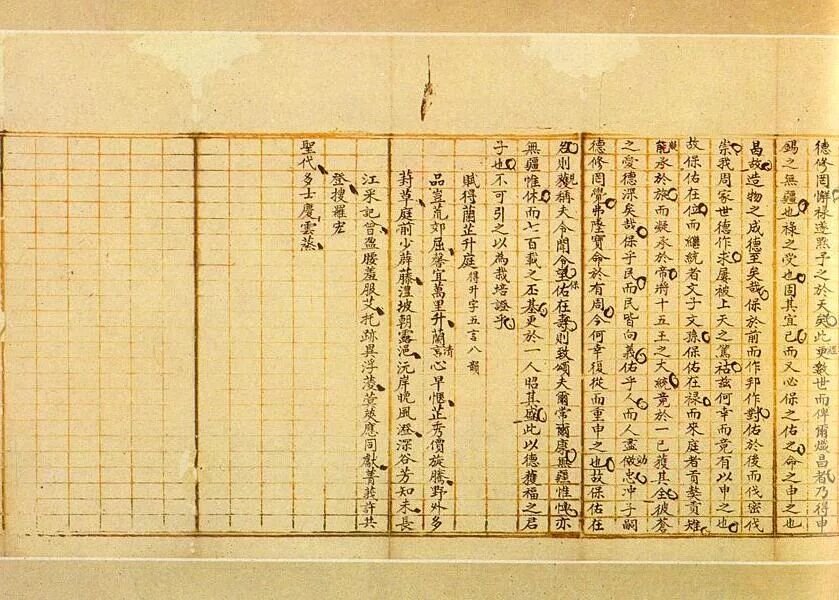 德修罔懈祿遂熙予之於天矣此更數世而俾爾熾昌者乃得申
錫之無疆也祿之受也固其宜已而又必保之佑之命之申之也
昌故造物之成德至矣哉保於前而作邦作對佑於後而伐密伐
崇我周家世德作求屢被上天之篤祜茲何幸而竟有以申之也
故保佑在位而繼統者文子文孫保佑在祿而來庭者貢獒貢雉
承於旅而凝承於常將十五王之大統竟於一已獲其全彼蒼
之愛德深矣哉保乎民而民皆向義佑乎人而人盡做忠冲子嗣
德修罔覺弗墜寶命於有周今何幸復從而重申之也故保佑在
名則獲稱夫令聞令望佑在壽則致頌夫爾常爾康無疆惟恤亦
無疆惟休而七百載之丕基更於一人昭其盛此以德獲福之君
子也不可引之以為栽培證乎
賦得蘭芷升庭 得升字五言八韻
品豈荒郊屈馨宜萬里升蘭言清心早愜芷秀價旋騰野外多
葑草庭前少薜藤澧坡朝露浥沅岸晚風澄深谷芳知未長
江采記曾盈腰羞服艾托跡異浮菱萱莢應同獻菁莪許共
登搜羅宏
聖代多士慶雲蒸